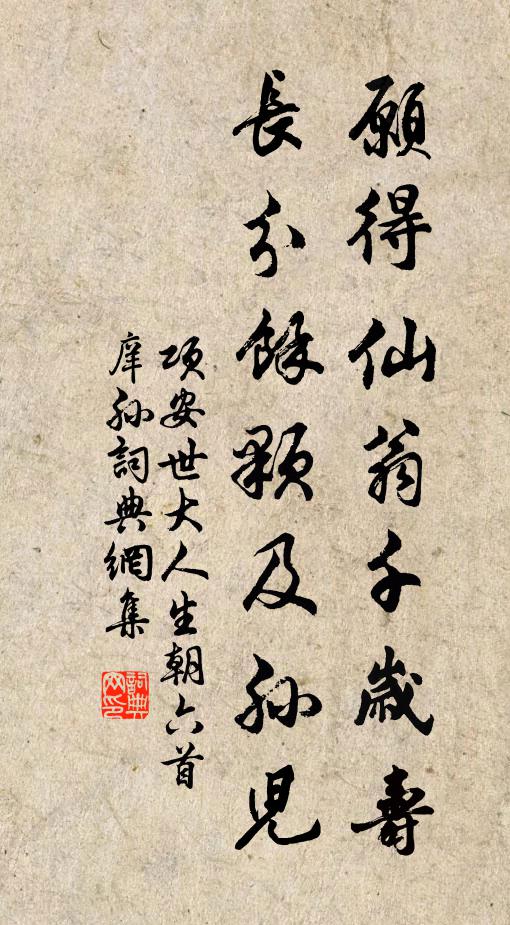 願得仙翁千歲壽
長分餘顆及孫兒
項安世大人生朝六首
庠孙詞典網集
詞典網印